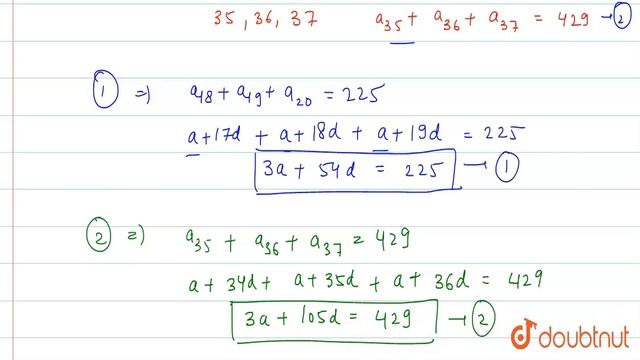 35, 36, 37 a₃₅ + a₃₆ + a₃₇ = 429 → ②
① ⇒) a₄₈ + a₄₉ + a₂₀ = 225
a + 17d + a + 18d + a + 19d = 225
3a + 54d = 225 → ①
② =) a₃₅ + a₃₆ + a₃₇ = 429
a + 34d + a + 35d + a + 36d = 429
3a + 105d = 429 → ②
doubtnut